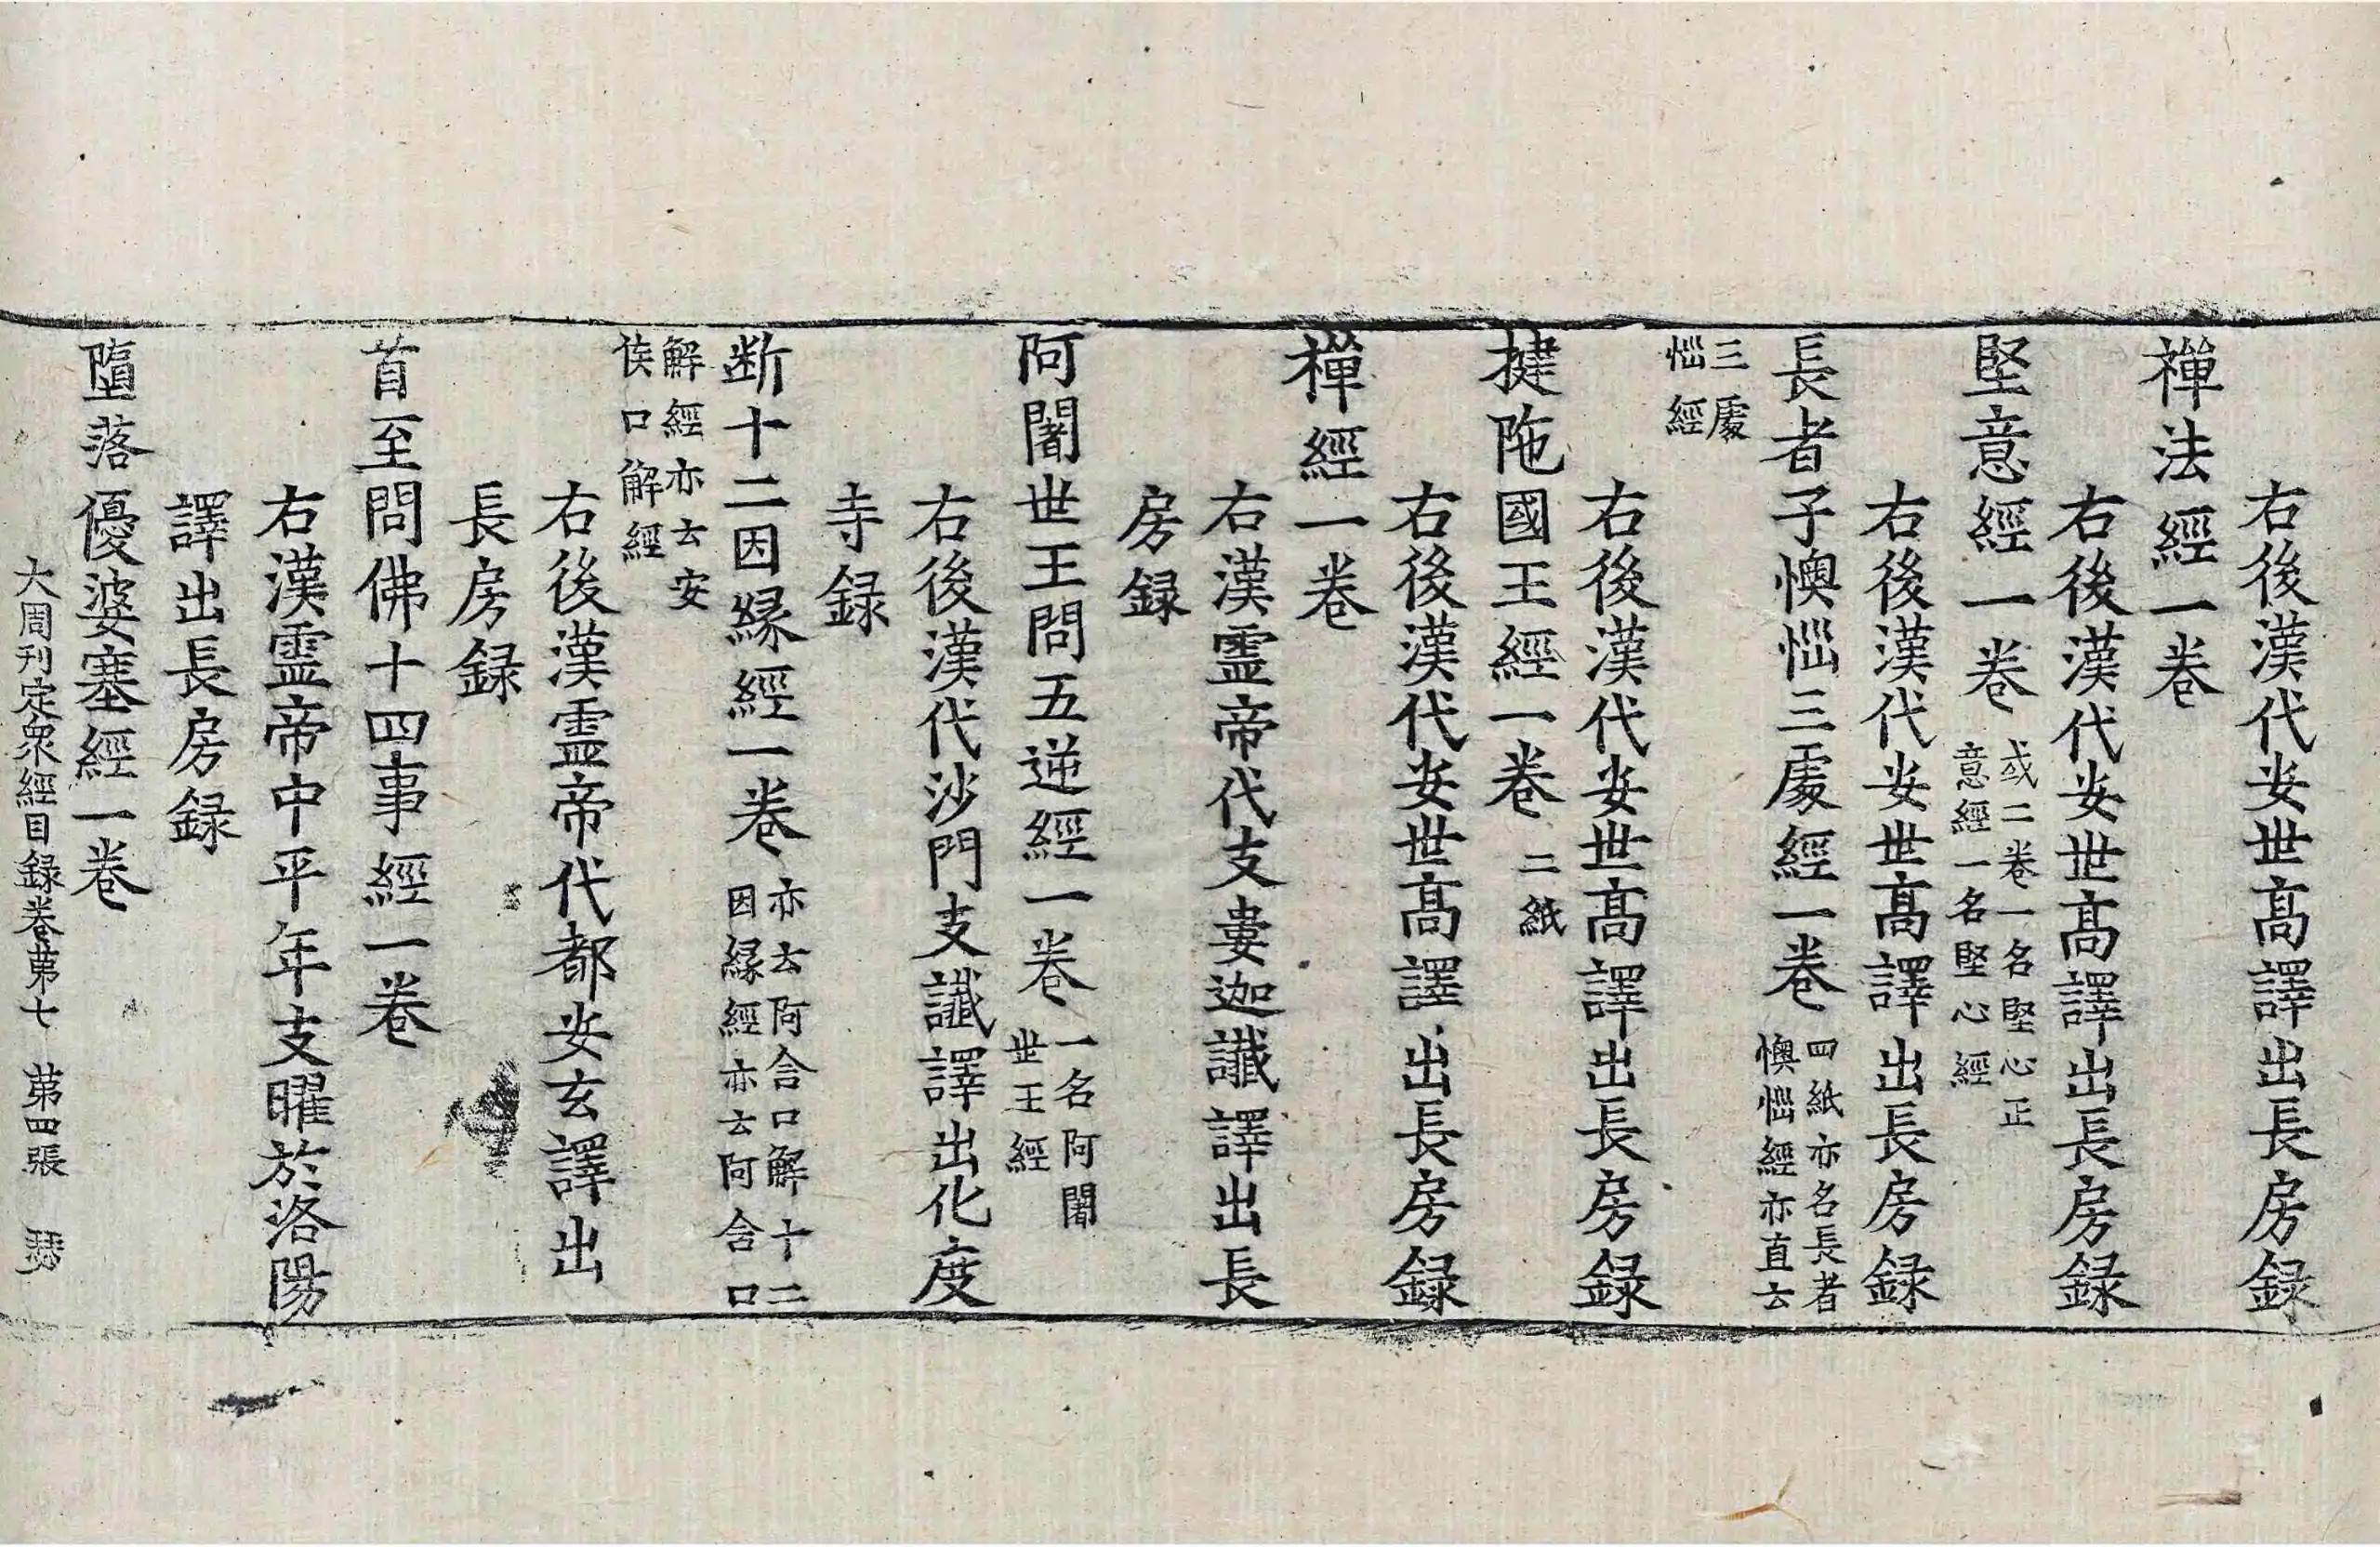 右後漢代安世髙譯出長房録
禪法經一卷
右後漢代安世髙譯出長房録
堅意經一卷
或二卷一名堅心正
意經一名堅心經
右後漢代安世髙譯出長房録
長者子懊惱三處經一卷
四紙亦名長者
懊惱經亦直云
三處
惱經
右後漢代安世髙譯出長房録
揵陁國王經一卷
二紙
右後漢代安世髙譯出長房録
禪經一卷
右漢霊帝代支婁迦讖譯出長
房録
阿闍世王問五逆經一卷
一名阿闍
世王經
右後漢代沙門支讖譯出化度
寺録
断十二因縁經一卷
亦云阿含口解十二
因縁經亦云阿含口
解經亦云安
侯口解經
右後漢霊帝代都安玄譯出
長房録
首至問佛十四事經一卷
右漢霊帝中平年支曜於洛陽
譯出長房録
墮落優婆塞經一卷
大周刊定衆經目録卷第七 第四張 瑟